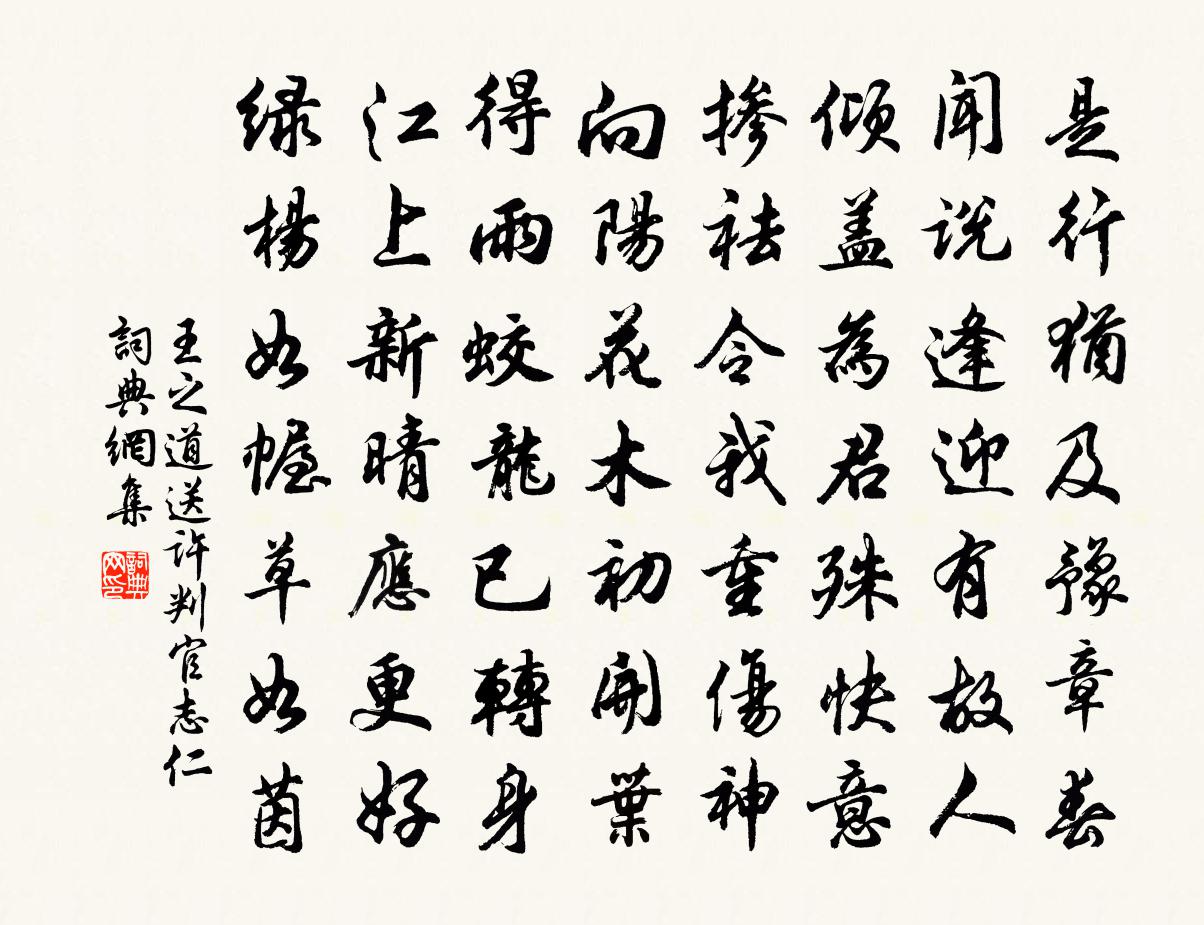 是行猶及豫章春
聞説逢迎有故人
傾盖為君殊快意
摻袪令我重傷神
向陽花木初開葉
得雨蛟龍已轉身
江上新晴應更好
緑楊如幄草如茵
王之道送許判官志仁
詞典網集
詞典网印